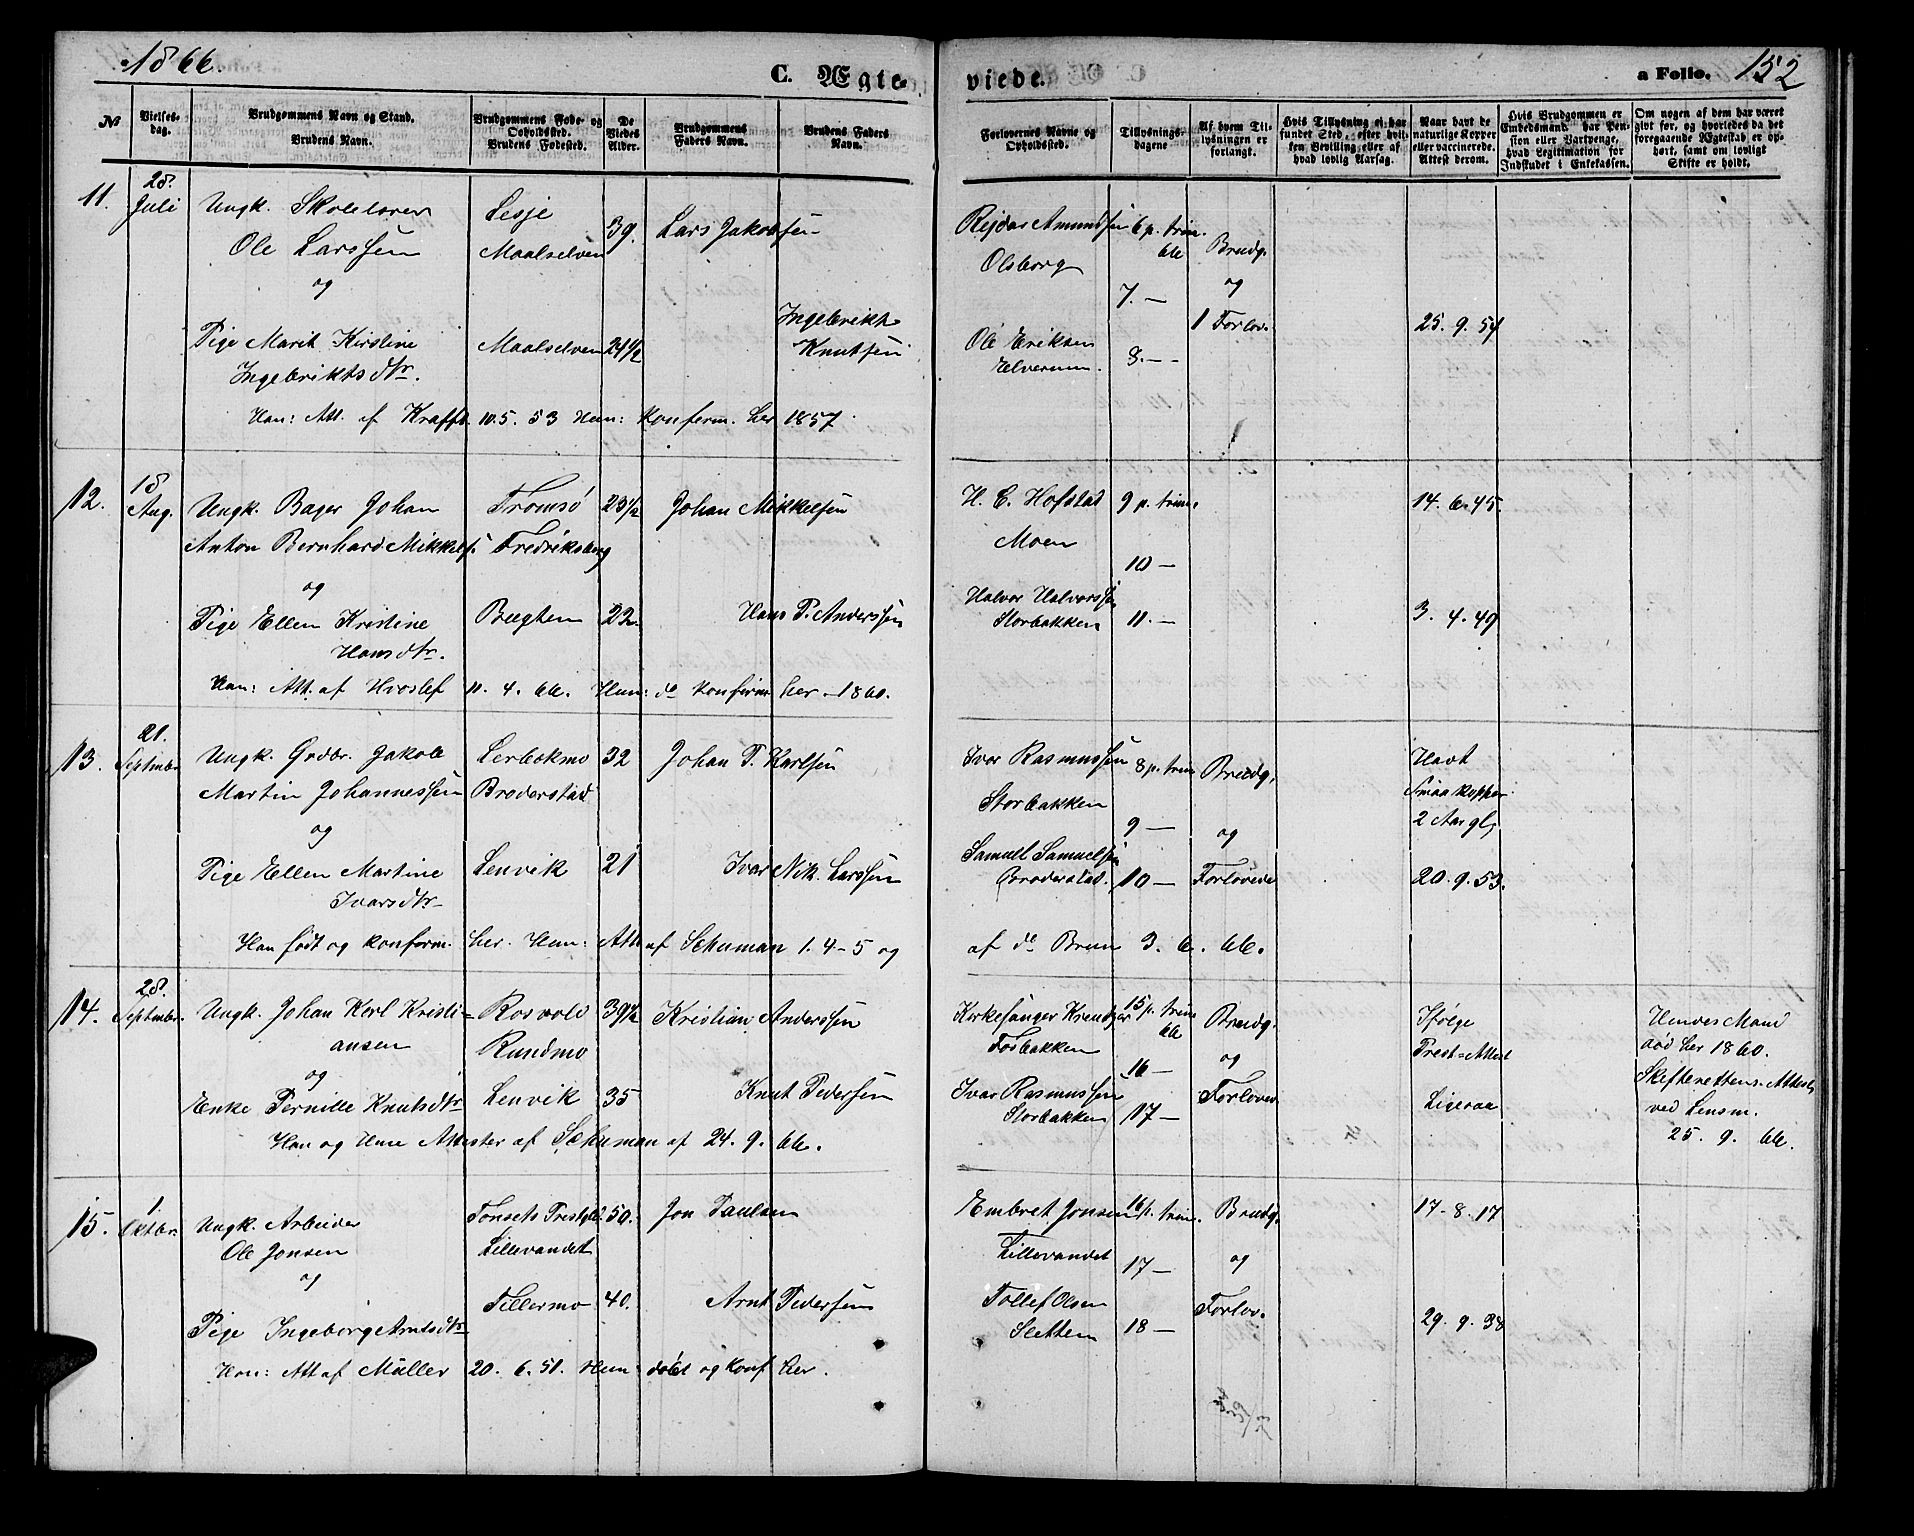 1866.
C. Ægte-
viede.
a Folio. 152
№
Vielses-
dag.
Brudgommens Navn og Stand.
Brudens Navn.
Brudgommens Føde- og
Opholdssted.
Brudens Fødested.
De
Viedes
Alder.
Brudgommens
Faders Navn.
Brudens Faders
Navn.
Forlovernes Navne og
Opholdssted.
Tillysnings-
dagene
Af hvem Til-
lysningen er
forlangt.
Hvis Tillysning ei har
fundet Sted, efter hvil-
ken Bevilling eller af
hvad lovlig Aarsag.
Naar havt de
naturlige Kopper
eller vaccinerede.
Attest derom.
Hvis Brudgommen er
Embedsmand har Pen-
sion eller Vartpenge,
hvad Legitimation for
Indskudet i Enkekassen.
Om nogen af dem har været
givt før, og hvorledes da det
foregaaende Ægteskab er op-
hørt, samt om lovligt
Skifte er holdt.
11.
28.
Juli
Ungk. Skolelærer
Ole Larssen
og
Pige Marit Kirstine
Ingebriktsdtr.
Lesje
Maalselven
Maalselven
39.
24½
Lars Jakobsen
Ingebrikt
Knutsen
Rejdar Amundsen
Olsborg
Ole Eriksen
Elverum.
6 p. trin.
66
7. —
8. —
Brudg.
og
1 Forlov.
25. 9. 54
Han: Att. af Krafft. 10. 5. 53 Hun: Konferm. her 1857.
12.
18
Aug.
Ungk. Bager Johan
Anton Bernhard Mikkels.
og
Pige Ellen Kristine
Hansdtr.
Tromsø
Fredriksberg
Bægten
23½
22.
Johan Mikkelsen
Hans P. Anderssen
H. C. Hofstad
Moen
Halvor Halvorssen
Storbakken
9 p. trin.
10 —
11. —
14. 6. 45.
3. 4. 49
Han: Att. af Hvoslef 11. 4. 66. Hun: do Konferm her 1860.
13.
21.
Septmbr.
Ungk. Grdbr. Jakob
Martin Johannessen
og
Pige Ellen Martine
Ivarsdtr
Lerbekmo
Broderstad
Lenvik
32
21
Johan P. Karlsen
Ivar Nik. Larssen
Ivar Rasmussen
Storbakken
Samuel Samuelsen
Broderstad.
8 p. trin
9 —
10 —
Brudg.
og
Forlovede
Havt
Smaakopper
2 Aar gl.
20. 9. 53.
Han født og konferm. her. Hun: Att af Schuman 1. 4 - 5 og af do Brun 3. 6. 66.
14.
28.
Septmbr.
Ungk. Johan Karl Kristi-
ansen
og
Enke Pernille Knutsdtr
Rosvold
Rundmo
Lenvik
39½
35
Kristian Anderssen
Knut Pedersen
Kirkesanger
Fosbakken
Ivar Rasmussen
Storbakken
15 p. trin
66
16 —
17 —
Brudg.
og
Forloved
Ifølge
Prest-Attest
Ligesaa
Hendes Mand
død her 1860.
Skifterettens Attest
ved Lensm.
25. 9. 66.
Han og Hun Attester af Schuman af 24. 9. 66.
15.
1
Oktbr.
Ungk. Arbeider
Ole Jonsen
og
Pige Ingeborg Arntsdtr
Tonsets Prestgld.
Lillevandet
Fillermo
50.
40.
Jon Paulsen
Arnt Pedersen
Embret Jonsen
Lillevandet
Tollef Olsen
Sletten
16 p. trin.
17 —
18 —
Brudg.
og
Forlov.
17 - 8. 17
29. 9. 38
Han: Att af Müller 20. 6. 51. Hun døbt og konf her.